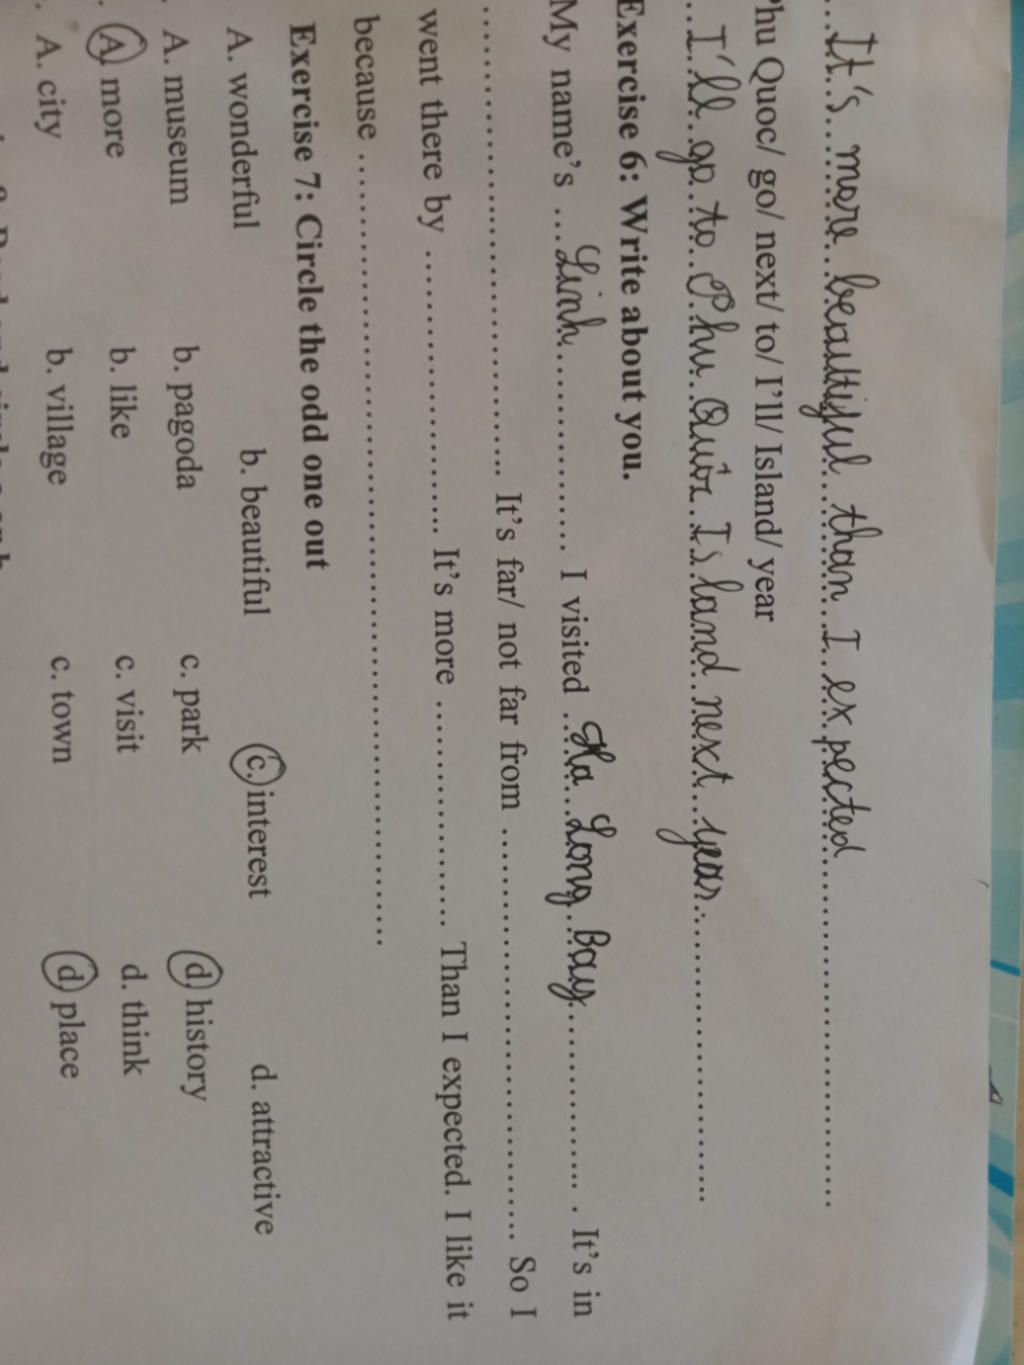 It's more beautiful than I expected
Phu Quoc/ go/ next/ to/ I'll/ Island/ year
I'll go to Phu Quốc Island next year.
Exercise 6: Write about you.
My name's ...Linh.................. I visited ...Ha Long Bay.................. . It's in
.................................................. It's far/ not far from .................................................. So I
went there by .................................. It's more ........................... Than I expected. I like it
because ..........................................................................................
Exercise 7: Circle the odd one out
A. wonderful b. beautiful c. interest d. attractive
A. museum b. pagoda c. park d. history
A. more b. like c. visit d. think
A. city b. village c. town d. place